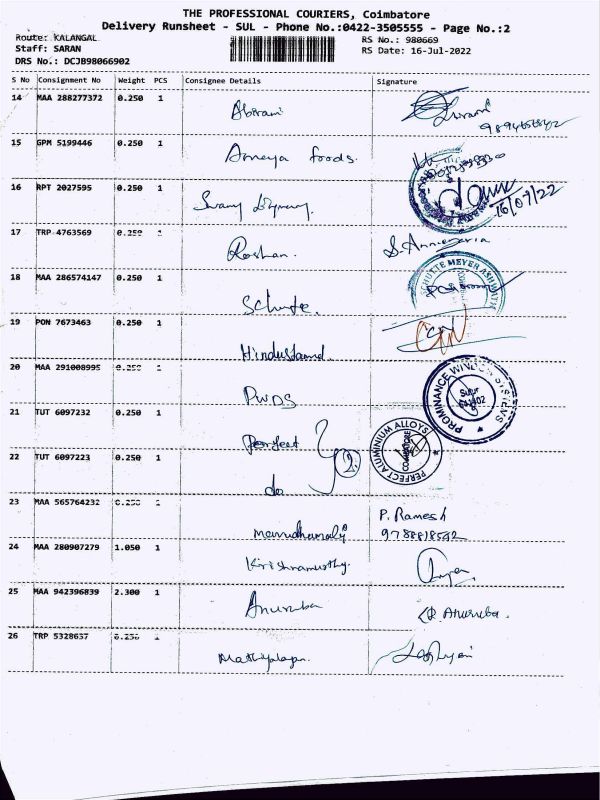 THE PROFESSIONAL COURIERS, Coimbatore
Delivery Runsheet - SUL - Phone No.:0422-3505555 - Page No.:2
Route: KALANGAL RS No.: 980669
Staff: SARAN RS Date: 16-Jul-2022
DRS No.: DCJB98066902
S No Consignment No Weight PCS Consignee Details Signature
14 MAA 288277372 0.250 1
Abirami
15 GPM 5199446 0.250 1
Ameya foods.
16 RPT 2027595 0.250 1
16/07/22
17 TRP 4763569 0.250 1
Roshan.
18 MAA 286574147 0.250 1
SCHUTTE MEYER ASHWATH
Schutte.
19 PON 7673463 0.250 1
Hindustand
20 MAA 291008995 0.250 1
PROMINANCE WINDOW SYSTEMS
Sulur
PWDS
21 TUT 6097232 0.250 1
Perfect
PERFECT ALUMINIUM ALLOYS
COIMBATORE
22 TUT 6097223 0.250 1
2
do
23 MAA 565764232 0.250 1
P. Ramesh
24 MAA 280907279 1.050 1
Krishnamurthy.
25 MAA 942396839 2.300 1
Anuruba
Anuruba.
26 TRP 5328637 0.250 1